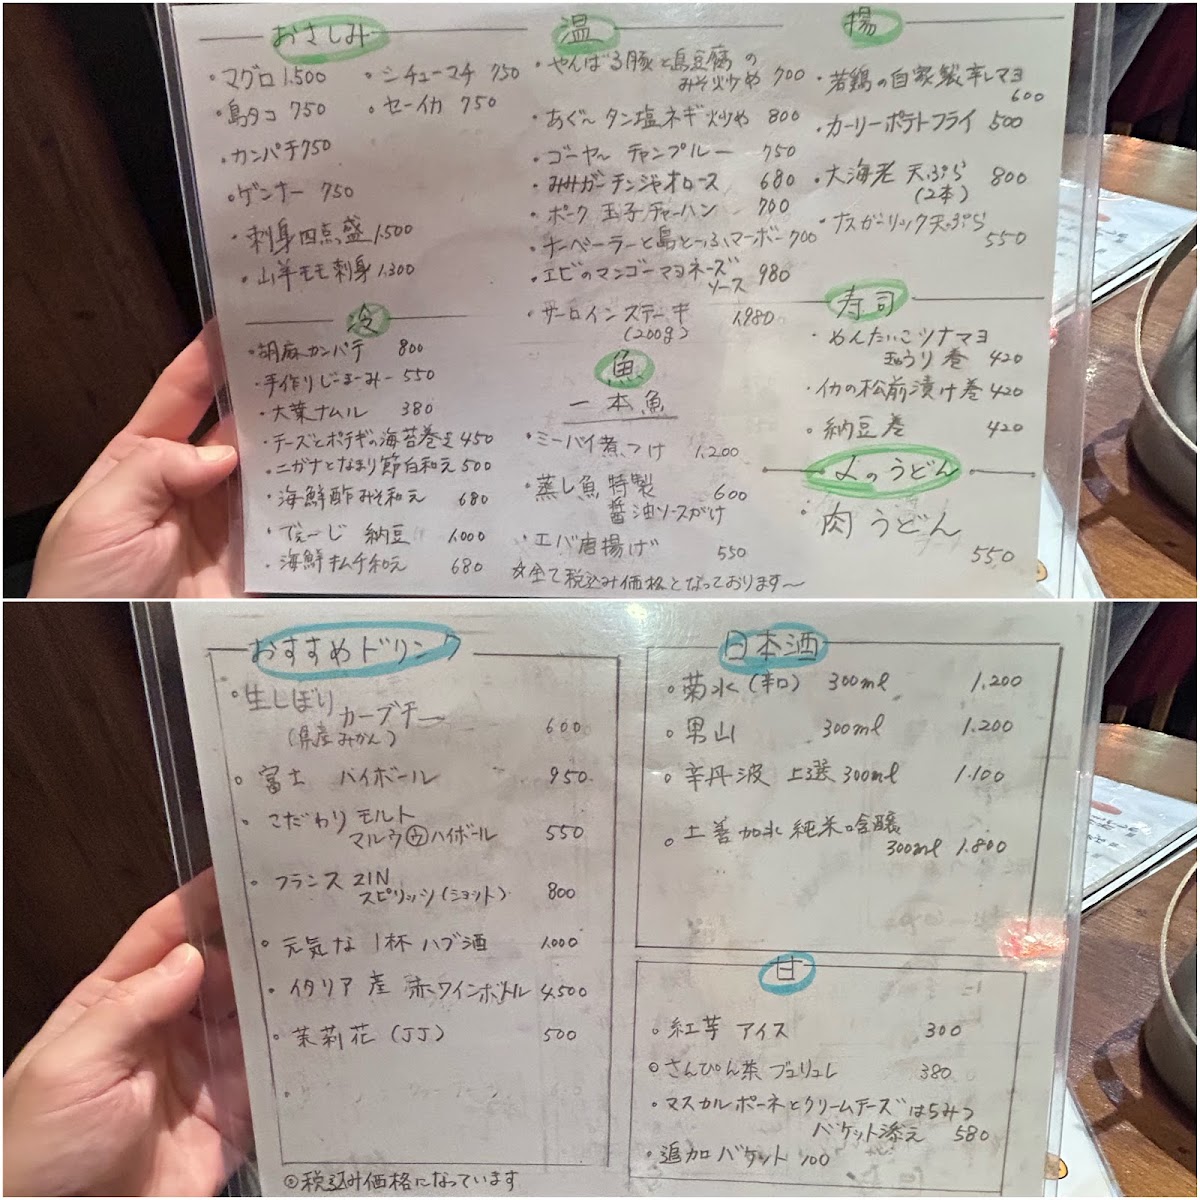 おさしみ
・マグロ 1.500
・島タコ 750
・カンパチ 750
・ゲンナー 750
・刺身四点盛 1.500
・山羊モモ刺身 1.300
・シチューマチ 750
・セーイカ 750
冷
・胡麻カンパチ 800
・手作りじーまーみー 550
・大葉ナムル 380
・チーズとポテギの海苔巻き 450
・ニガナとなまり節白和え 500
・海鮮酢みそ和え 680
・でぇーじ 納豆 1.000
・海鮮キムチ和え 680
温
・やんばる豚と島豆腐の
みそ炒め 700
・あぐー タン塩ネギ炒め 800
・ゴーヤー チャンプルー 750
・みみガーチンジャオロース 680
・ポーク玉子チャーハン 700
・ナーベーラーと島とーふマーボー 700
・エビのマンゴーマヨネーズ
ソース 980
・サーロインステーキ 1.980
(200g)
魚
一本魚
・ミーバイ煮つけ 1.200
・蒸し魚 特製 600
醤油ソースがけ
・エバ唐揚げ 550
☆全て税込み価格となっております〜
揚
・若鶏の自家製辛しマヨ
600
・カーリーポテトフライ 500
・大海老 天ぷら 800
(2本)
・ナスガーリック天ぷら
550
寿司
・めんたいこツナマヨ
きゅうり巻 420
・イカの松前漬け巻 420
・納豆巻 420
〆のうどん
・肉うどん
550
おすすめドリンク
・生しぼり
カーブチー 600
(県産みかん)
・富士 ハイボール 950
・こだわりモルト
マルウ㋒ハイボール 550
・フランス ZIN
スピリッツ(ショット) 800
・元気な1杯 ハブ酒 1.000
・イタリア産 赤ワインボトル 4.500
・茉莉花 (JJ) 500
◎税込み価格になっています
日本酒
・菊水(辛口) 300ml 1.200
・男山 300ml 1.200
・辛丹波 上選 300ml 1.100
・上善如水 純米吟醸
300ml 1.800
甘
・紅芋 アイス 300
・さんぴん茶 ブリュレ 380
・マスカルポーネとクリームチーズはちみつ
バケット添え 580
・追加バケット 100